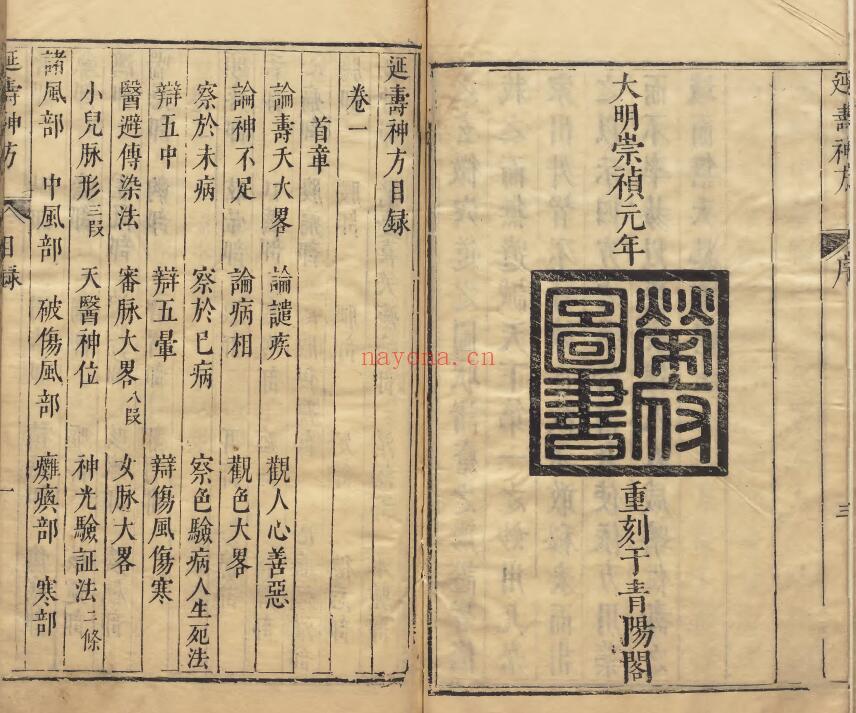 延壽神方
序
三
大明崇禎元年
榮府圖書
重刻于青陽閣
延壽神方目録
卷一
首章
論壽夭大畧 論譴疾 觀人心善惡
論神不足 論病相 觀色大畧
察於未病 察於已病 察色驗病人生死法
辯五中 辯五暈 辯傷風傷寒
醫避傳染法 審脉大畧八段 女脉大畧
小兒脉形三段 天醫神位 神光驗証法二條
諸風部 中風部 破傷風部 癱瘓部 寒部
延壽神方
目録
一
nayona.cn